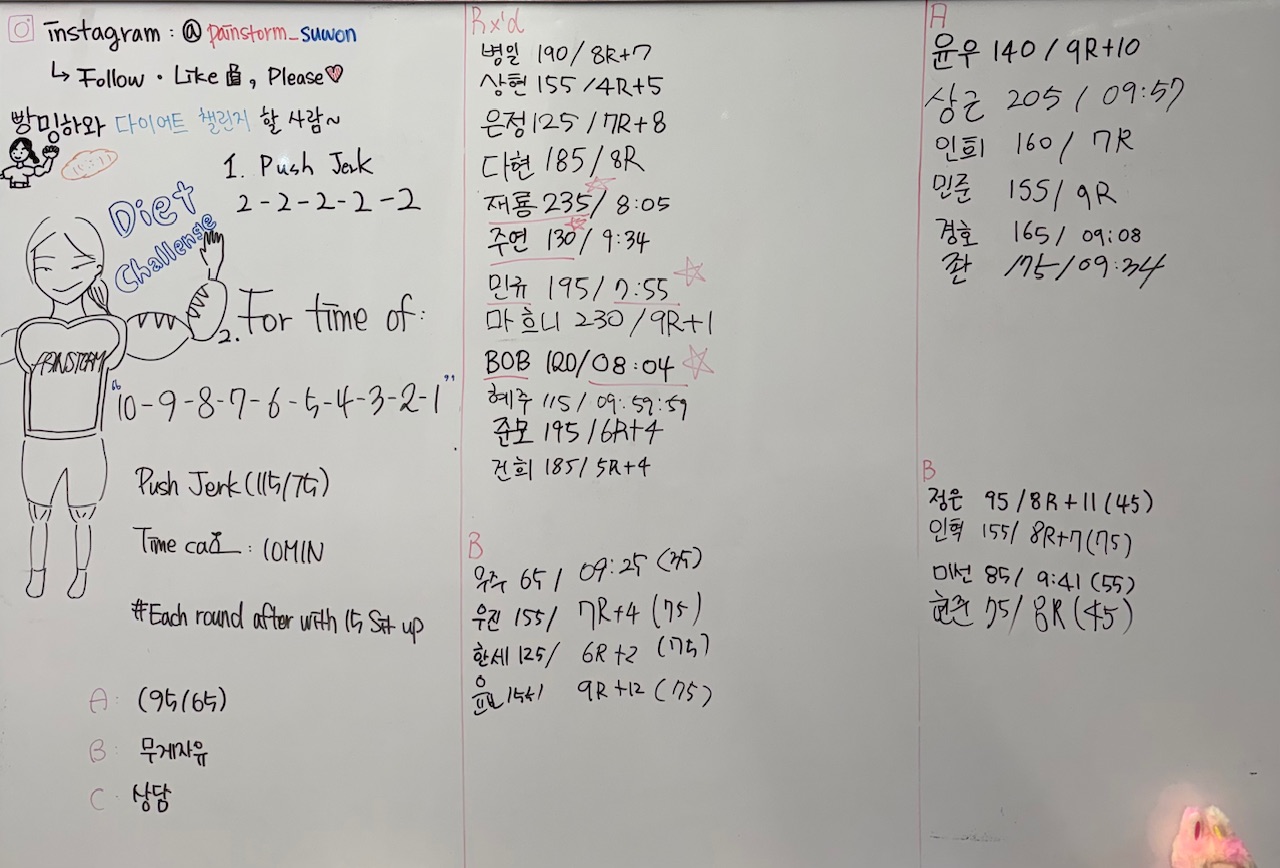 instagram : @ painstorm_suwon
↳ Follow · Like , Please
빵밍하와 다이어트 챌린지 할 사람~
Diet
Challenge
1. Push Jerk
2-2-2-2-2
PAINSTORM
2. For time of:
"10-9-8-7-6-5-4-3-2-1"
Push Jerk (115/75)
Time cap : 10MIN
#Each round after with 15 Sit up
A: (95/65)
B: 무게자유
C: 상담
Rx'd
병일 190/8R+7
상현 155/4R+5
은정 125/7R+8
다현 185/8R
재룡 235/8:05
주연 130/9:34
민규 195/7:55
마흐니 230/9R+1
BOB 120/08:04
혜주 115/09:59:59
준모 195/6R+4
건희 185/5R+4
B
우주 65/09:25 (35)
우진 155/7R+4 (75)
한세 125/6R+2 (75)
9R+12 (75)
A
윤우 140/9R+10
상근 205/09:57
인희 160/7R
민준 155/9R
경호 165/09:08
좐 175/09:34
B
정은 95/8R+11 (45)
인혁 155/8R+7 (75)
미선 85/9:41 (55)
현주 75/8R (45)